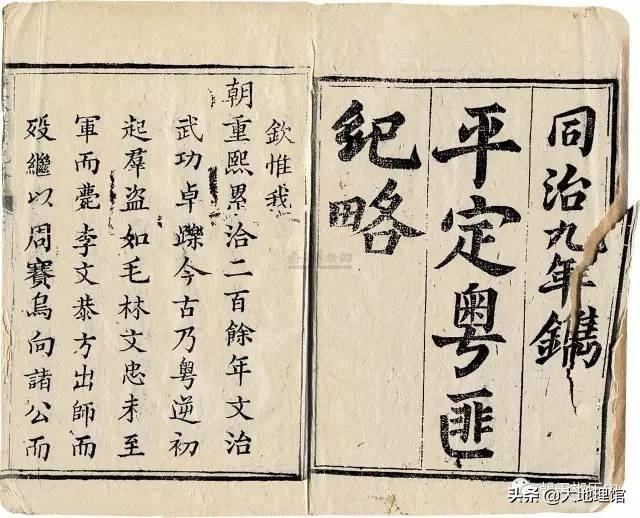 同治九年鐫
平定粤匪
紀略
欽惟我
朝重熙累洽二百餘年文治
武功卓躒今古乃粤逆初
起羣盗如毛林文忠未至
軍而薨李文恭方出師而
殁繼以周賽烏向諸公而
头条@大地理馆